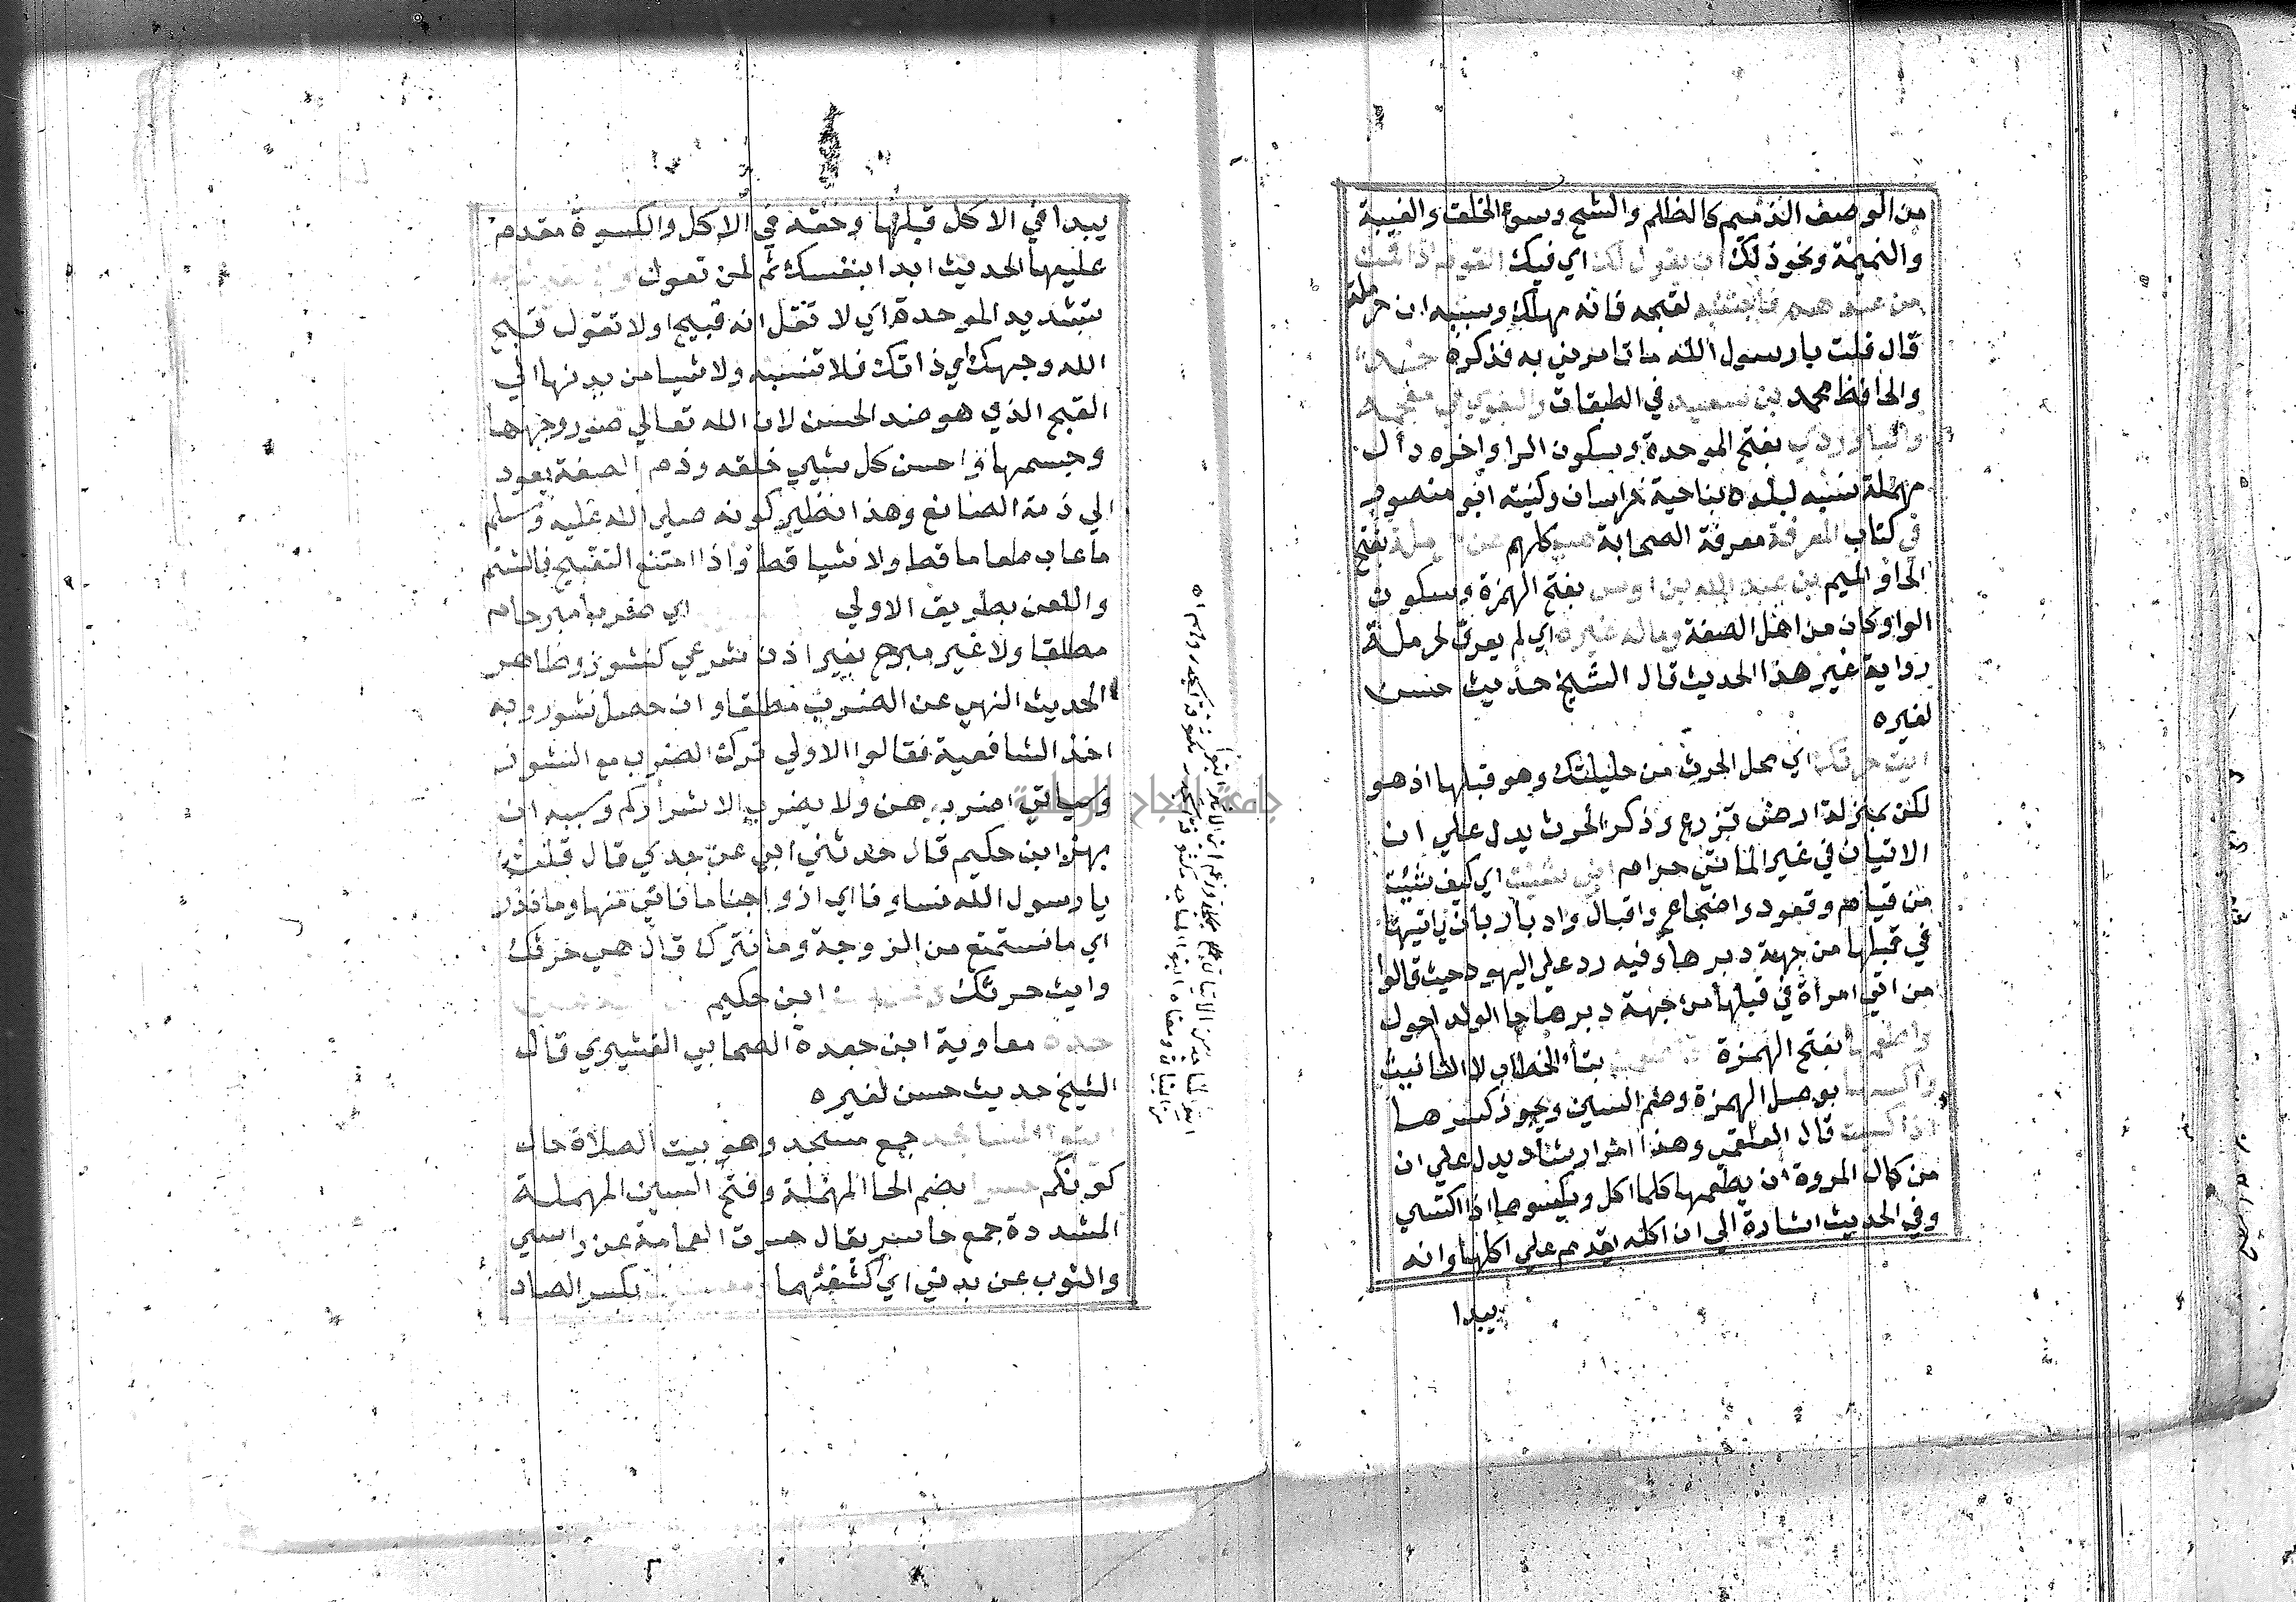 من الوصف الذميم كالظلم والشح وسوء الخلق والغيبة
والنميمة ونحو ذلك ان يقول لك اي فيك القوم اذا قمت
من عندهم فاجتنبه لقبحه فانه مهلك وسببه ان حرملة
قال قلت يا رسول الله ما تامرني به فذكره
والحافظ محمد بن سعيد في الطبقات والبغوي في معجمه
والباوردي بفتح الموحدة وسكون الرا واخره دال
مهملة نسبه لبلده بناحية خراسان وكنيته ابو منصور
في كتاب المعرفة معرفة الصحابة كلهم عن بفتح
الحا والميم بن عبد الله بن اوس بفتح الهمزة وسكون
الواو وكان من اهل الصفة وماله غيره اي لم يعرف لحرملة
رواية غير هذا الحديث قال الشيخ حديث حسن
لغيره
ايت حرثك اي محل الحرث من حليلتك وهو قبلها اذ هو
لكن بمنزلة ارض تزرع وذكر الحرث يدل علي ان
الاتيان في غير الماتي حرام اني شيت اي كيف شيت
من قيام وقعود واضجاع واقبال وادبار بان ياتيها
في قبلها من جهة دبرها وفيه رد علي اليهود حيث قالوا
من اتي امراة في قبلها من جهة دبرها جا الولد احول
واطعمها بفتح الهمزة بتا الخطاب لا التانيث
واكسها بوصل الهمزة وضم السين ويجوز كسرها
اذا اكتسيت قال العلقمي وهذا امر ارشاد يدل علي ان
من كمال المروة ان يطعمها كلما اكل ويكسوها اذا اكتسي
وفي الحديث اشارة الي ان اكله يقدم علي اكلها وانه
يبدا
يبدا في الاكل قبلها وحقه في الاكل والكسوة مقدم
عليها لحديث ابدا بنفسك ثم بمن تعول
بتشديد الموحدة اي لا تقل انه قبيح اولا تقول قبح
الله وجهك اي ذاتك فلا تنسبه ولا شيا من بدنها الي
القبح الذي هو ضد الحسن لان الله تعالي صور وجهها
وجسمها واحسن كل شيي خلقه وذم الصفة يعود
الي ذمة الصانع وهذا نظير كونه صلي الله عليه وسلم
ما عاب طعاما قط ولا شيا قط واذا امتنع التقبيح فالشتم
واللعن بطريق الاولي اي ضربا مبرحا م
مطلقا ولا غير مبرح بغير اذن شرعي كنشوز وظاهر
الحديث النهي عن الضرب مطلقا وان حصل نشوز وبه
اخذ الشافعية فقالوا الاولي ترك الضرب مع النشوز
وسياتي اضربوهن ولا يضرب الا شراركم وسببه ان
بهز ابن حكيم قال حدثني ابي عن جدي قال قلت
يا رسول الله نساونا اي ازواجنا ما ناتي منها وما نذر
اي ما نستمتع من الزوجة وما نترك قال هي حرثك
وايت حرثك ابن حكيم
جده معاوية ابن حيدة الصحابي القشيري قال
الشيخ حديث حسن لغيره
ايتوا المساجد جمع مسجد وهو بيت الصلاة حال
كونكم حسرا بضم الحا المهملة وفتح السين المهملة
المشددة جمع حاسر يقال حسرت العمامة عن راسي
والثوب عن بدني اي كشفتهما بكسر الصاد
جامعة النجاح الوطنية